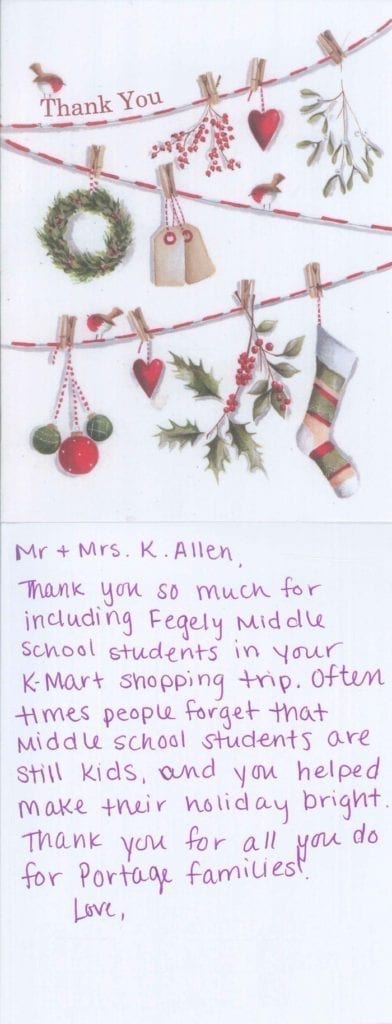 Thank You
Mr + Mrs. K. Allen,
Thank you so much for
including Fegely Middle
School students in your
K-Mart shopping trip. Often
times people forget that
Middle school students are
still kids, and you helped
make their holiday bright.
Thank you for all you do
for Portage families!
Love,